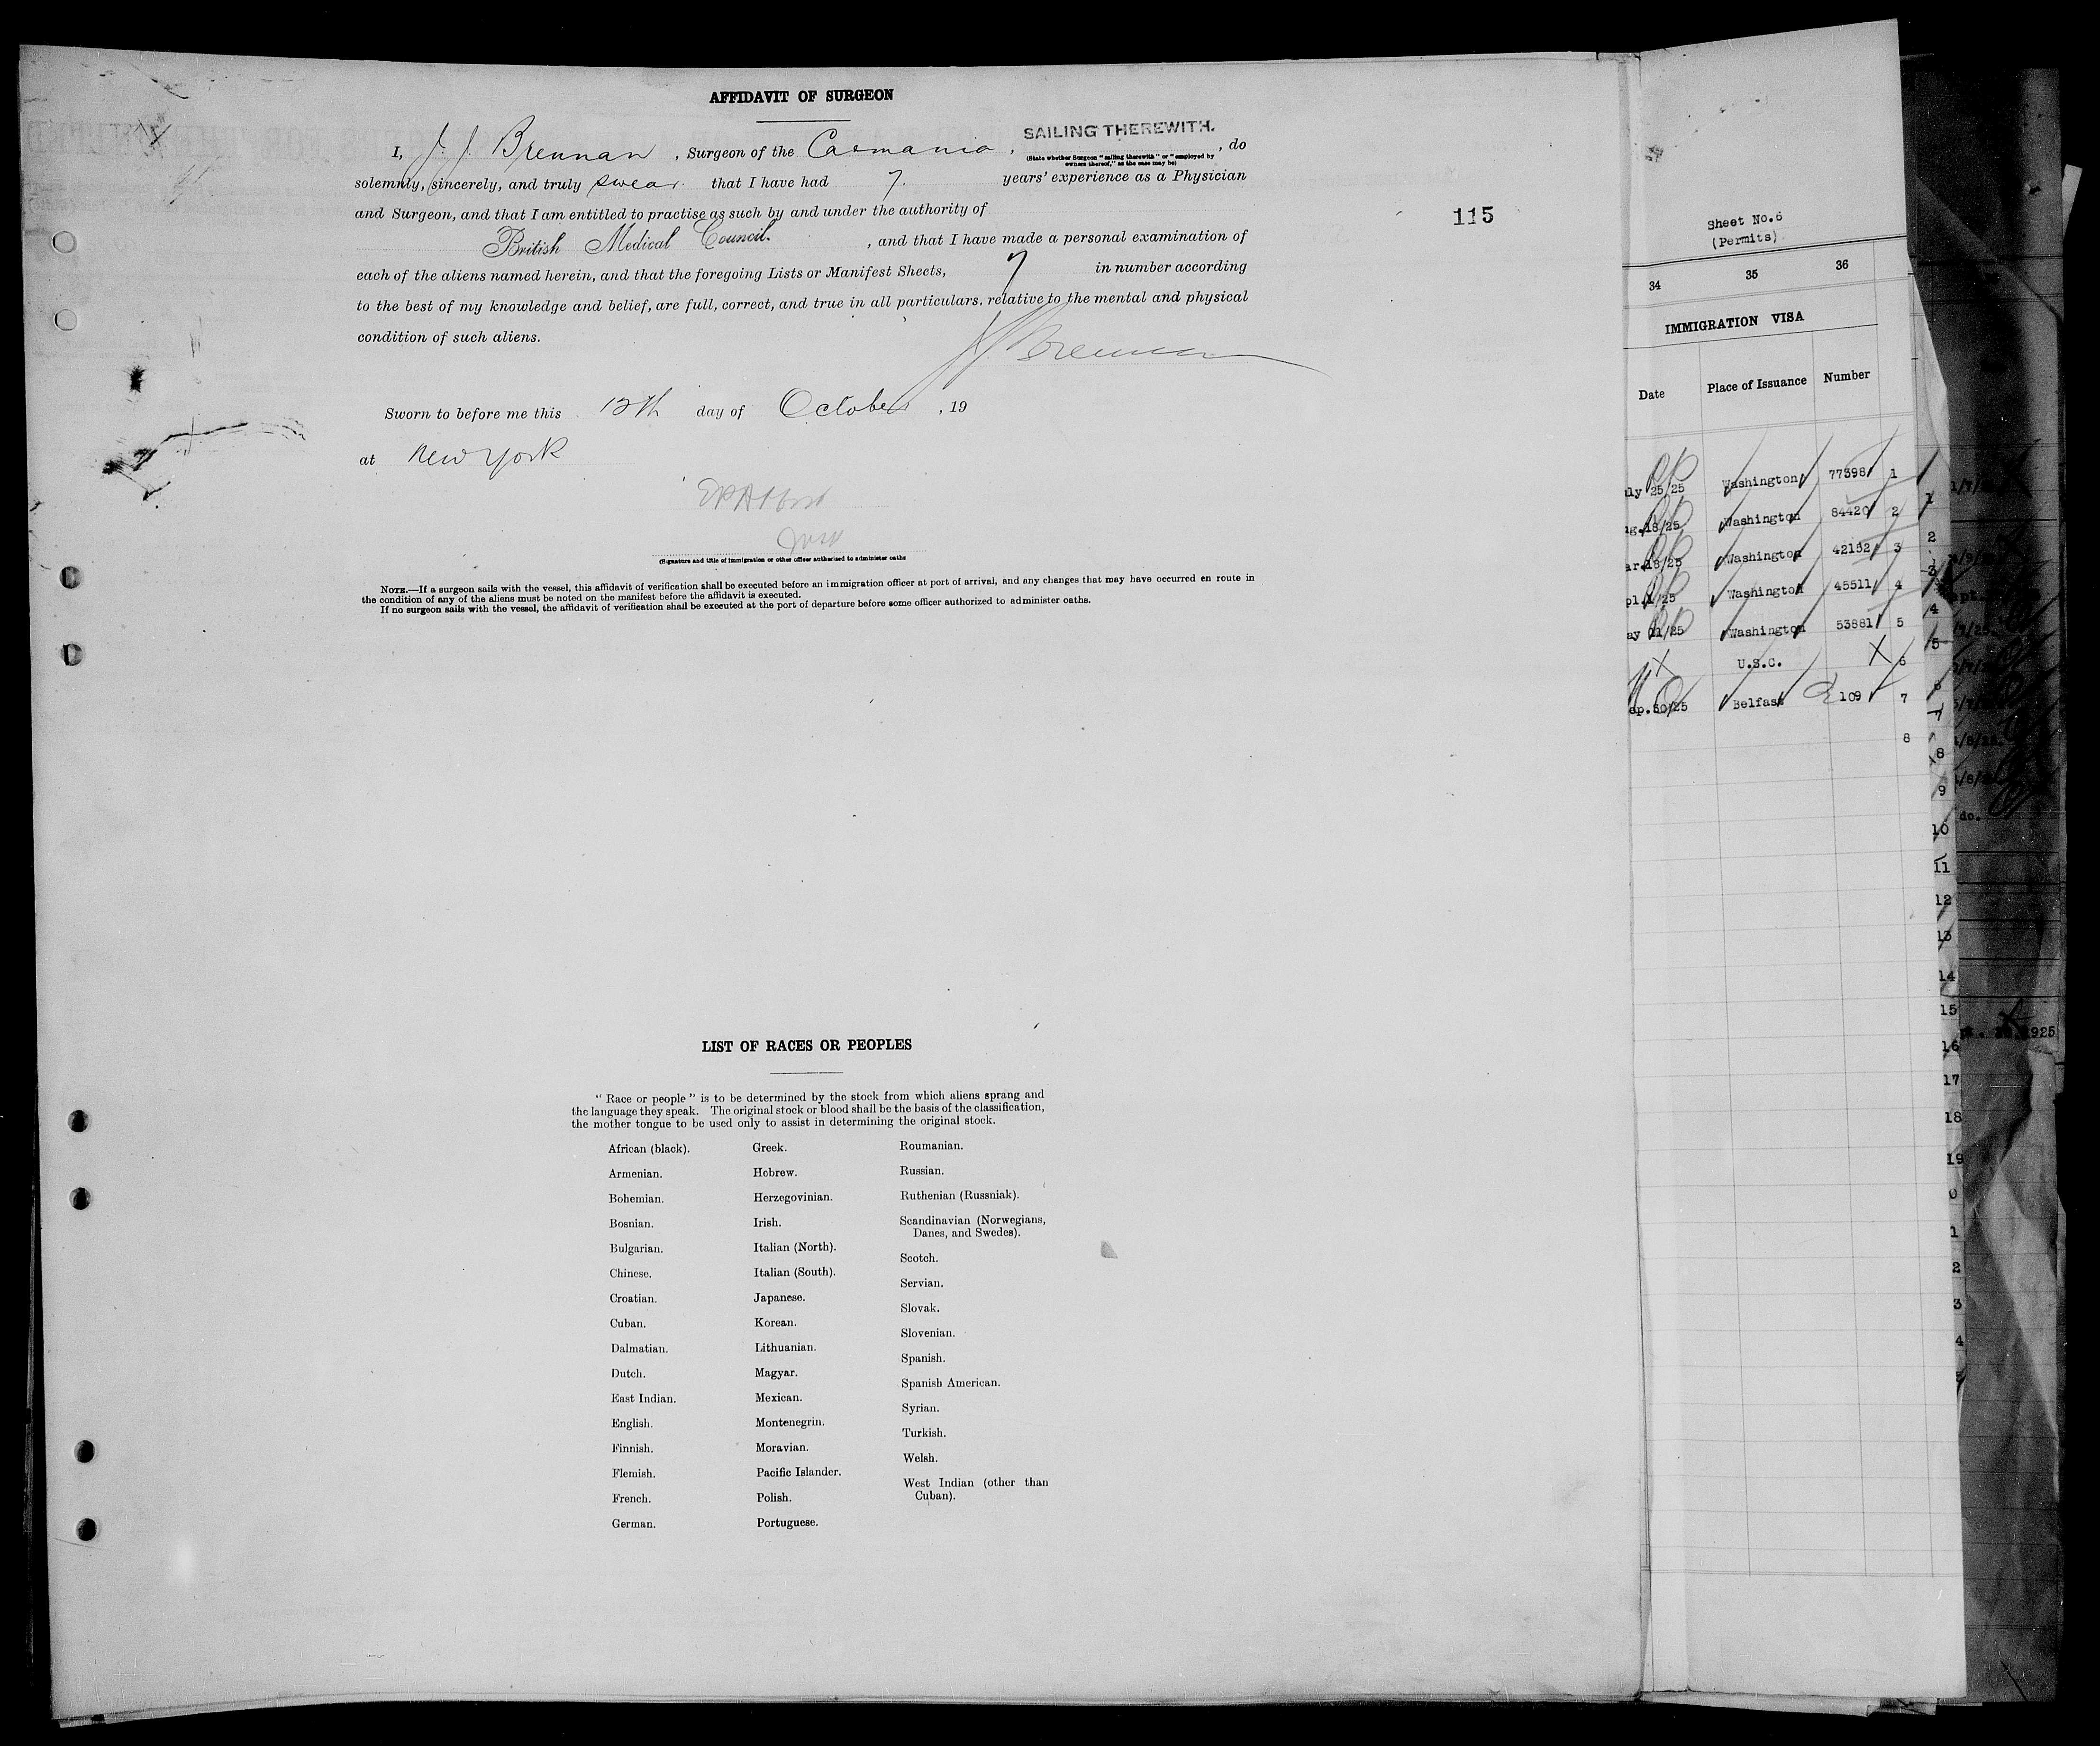 AFFIDAVIT OF SURGEON
SAILING THEREWITH.
I, J. J. Brennan, Surgeon of the Carmania, , do
(State whether Surgeon "sailing therewith" or "employed by
owners thereof," as the case may be)
solemnly, sincerely, and truly swear that I have had 7. years' experience as a Physician
and Surgeon, and that I am entitled to practise as such by and under the authority of
British Medical Council. , and that I have made a personal examination of
each of the aliens named herein, and that the foregoing Lists or Manifest Sheets, 7 in number according
to the best of my knowledge and belief, are full, correct, and true in all particulars, relative to the mental and physical
condition of such aliens.
J J Brennan
Sworn to before me this 12th day of October , 19
at New York
(Signature and title of immigration or other officer authorised to administer oaths
NOTE.—If a surgeon sails with the vessel, this affidavit of verification shall be executed before an immigration officer at port of arrival, and any changes that may have occurred en route in
the condition of any of the aliens must be noted on the manifest before the affidavit is executed.
If no surgeon sails with the vessel, the affidavit of verification shall be executed at the port of departure before some officer authorized to administer oaths.
115
LIST OF RACES OR PEOPLES
"Race or people" is to be determined by the stock from which aliens sprang and
the language they speak. The original stock or blood shall be the basis of the classification,
the mother tongue to be used only to assist in determining the original stock.
African (black).
Armenian.
Bohemian.
Bosnian.
Bulgarian.
Chinese.
Croatian.
Cuban.
Dalmatian.
Dutch.
East Indian.
English.
Finnish.
Flemish.
French.
German.
Greek.
Hebrew.
Herzegovinian.
Irish.
Italian (North).
Italian (South).
Japanese.
Korean.
Lithuanian.
Magyar.
Mexican.
Montenegrin.
Moravian.
Pacific Islander.
Polish.
Portuguese.
Roumanian.
Russian.
Ruthenian (Russniak).
Scandinavian (Norwegians,
Danes, and Swedes).
Scotch.
Servian.
Slovak.
Slovenian.
Spanish.
Spanish American.
Syrian.
Turkish.
Welsh.
West Indian (other than
Cuban).
Sheet No.6
(Permits)
34 35 36
IMMIGRATION VISA
Date Place of Issuance Number
uly 25/25 Washington 77398 1
ug.18/25 Washington 84420 2
ar.18/25 Washington 42152 3
pl.1/25 Washington 45511 4
ay 11/25 Washington 53881 5
X U.S.C. X 6
ep.30/25 Belfast 109 7
8
1
2
3
4
5
6
7
8
9
10
11
12
13
14
15
16
17
18
19
0
1
2
3
4
do.